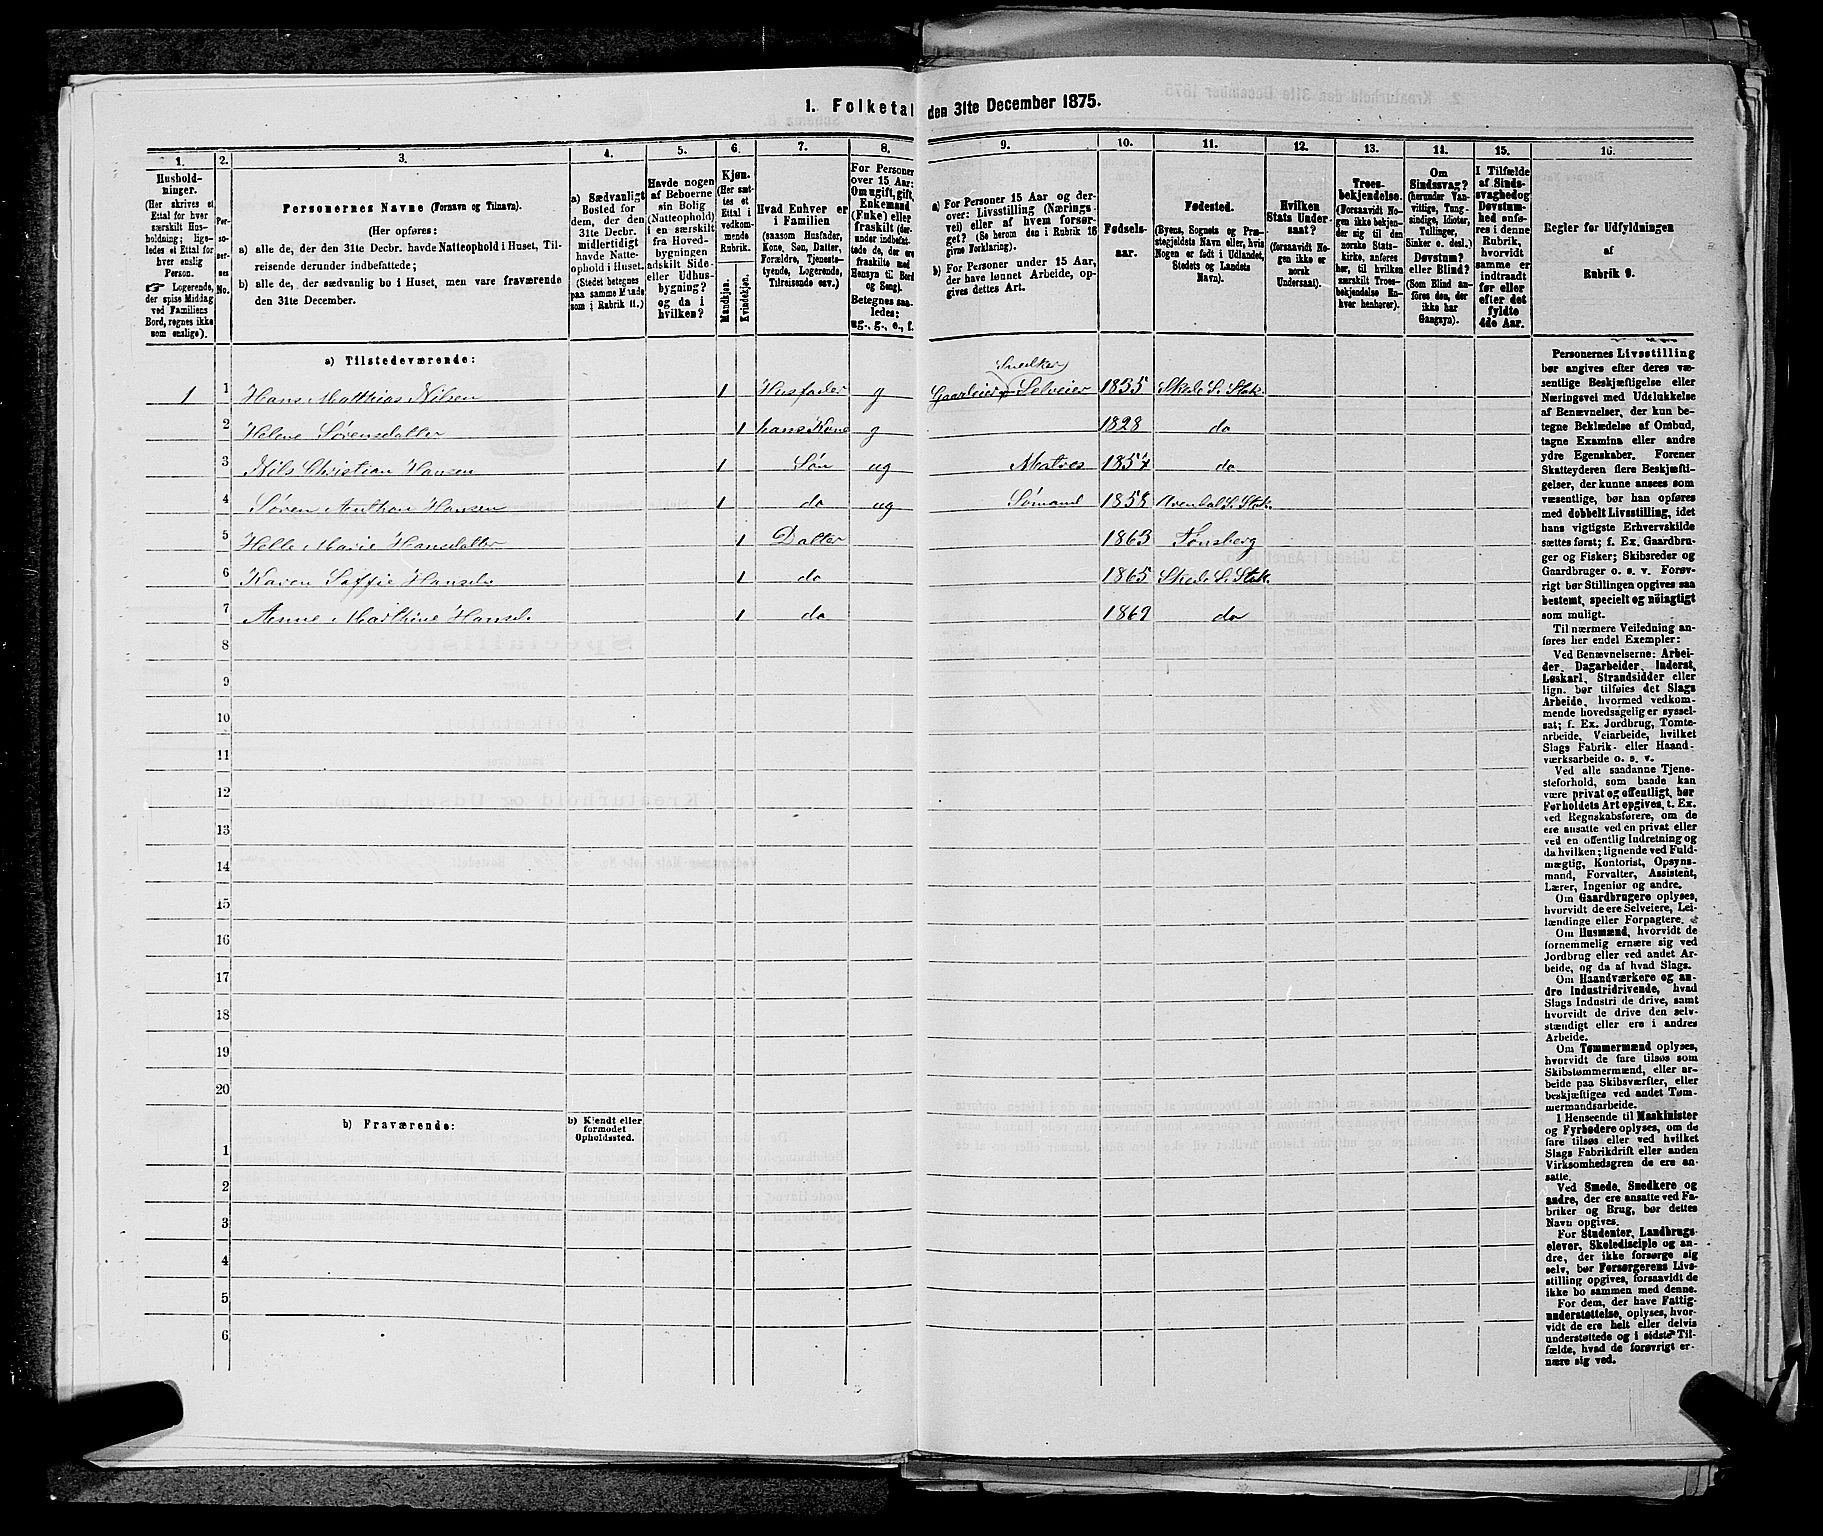 1. Folketal den 31te December 1875.
1.
2.
3.
4.
5.
6.
7.
8.
9.
10.
11.
12.
13.
14.
15.
16.
Hushold-
ninger.
(Her skrives et
Ettal for hver
særskilt Hus-
holdning; lige-
ledes et Ettal for
hver enslig
Person.
Logerende,
der spise Middag
ved Familiens
Bord, regnes ikke
som enslige).
Per-
so-
ner-
nes
No.
Personernes Navne (Fornavn og Tilnavn).
(Her opføres:
a) alle de, der den 31te Decbr. havde Natteophold i Huset, Til-
reisende derunder indbefattede;
b) alle de, der sædvanlig bo i Huset, men vare fraværende
den 31te December.
a) Sædvanligt
Bosted for
dem, der den
31te Decbr.
midlertidigt
havde Natte-
ophold i Huset.
(Stedet betegnes
paa samme Maade
som i Rubrik 11.)
Havde nogen
af Beboerne
sin Bolig
(Natteophold)
i en særskilt
fra Hoved-
bygningen
adskilt Side-
eller Udhus-
bygning?
og da i
hvilken?
Kjøn.
(Her sæt-
tes et
Ettal i
vedkom-
mende
Rubrik.
Mandkjøn.
Kvindekjøn.
Hvad Enhver er
i Familien
(saasom Husfader,
Kone, Søn, Datter,
Forældre, Tjeneste-
tyende, Logerende,
Tilreisende osv.)
For Personer
over 15 Aar:
Om ugift, gift,
Enkemand
(Enke) eller
fraskilt (der-
under indbefat-
tede de, der ere
fraskilte med
Hensyn til Bord
og Seng).
Betegnes saa-
ledes:
ug., g., e., f.
a) For Personer 15 Aar og der-
over: Livsstilling (Nærings-
vei) eller af hvem forsør-
get? (Se herom den i Rubrik 16
givne Forklaring).
b) For Personer under 15 Aar,
der have lønnet Arbeide, op-
gives dettes Art.
Fødsels-
aar.
Fødested.
(Byens, Sognets og Præ-
stegjeldets Navn eller, hvis
Nogen er født i Udlandet,
Stedets og Landets
Navn).
Hvilken
Stats Under-
saat?
(forsaavidt No-
gen ikke er
norsk
Undersaat).
Troes-
bekjendelse.
(Forsaavidt No-
gen ikke bekjen-
der sig til den
norske Stats-
kirke, anføres
her, til hvilken
særskilt Troes-
bekjendelse En-
hver henhører).
Om
Sindssvag?
(herunder Van-
vittige, Tung-
sindige, Idioter,
Tullinger,
Sinker o. desl.)
Døvstum?
eller Blind?
(Som Blind an-
føres den, der
ikke har
Gangsyn).
I Tilfælde
af Sinds-
svaghed og
Døvstum-
hed anfø-
res i denne
Rubrik,
hvorvidt
samme er
indtraadt
før eller
efter det
fyldte
4de Aar.
Regler for Udfyldningen
af
Rubrik 9.
a) Tilstedeværende:
Snedker
1 1 Hans Matthias Nilsen 1 Husfader g Gaardeier Selveier 1835 Skede S. Stok.
2 Helene Sørensdatter 1 hans Kone g 1828 do
3 Nils Christian Hansen 1 Søn ug Matros 1857 do
4 Søren Anthon Hansen 1 do ug Sømand 1858 Arendal S. Stok.
5 Helle Marie Hansdatter 1 Datter 1863 Tønsberg
6 Karen Soffie Hansd. 1 do 1865 Skede S. Stok.
7 Anne Marthine Hansd. 1 do 1869 do
8
9
10
11
12
13
14
15
16
17
18
19
20
b) Fraværende:
b) Kjendt eller
formodet
Opholdssted.
1
2
3
4
5
6
Personernes Livsstilling
bør angives efter deres væ-
sentlige Beskjæftigelse eller
Næringsvei med Udelukkelse
af Benævnelser, der kun be-
tegne Beklædelse af Ombud,
tagne Examina eller andre
ydre Egenskaber. Forener
Skatteyderen flere Beskjæfti-
gelser, der kunne ansees som
væsentlige, bør han opføres
med dobbelt Livsstilling, idet
hans vigtigste Erhvervskilde
sættes først; f. Ex. Gaardbru-
ger og Fisker; Skibsreder og
Gaardbruger o. s. v. Forøv-
rigt bør Stillingen opgives saa
bestemt, specielt og nöiagtigt
som muligt.
Til nærmere Veiledning an-
føres her endel Exempler:
Ved Benævnelserne: Arbei-
der, Dagarbeider, Inderst,
Løskarl, Strandsidder eller
lign. bør tilføies det Slags
Arbeide, hvormed vedkom-
mende hovedsagelig er syssel-
sat; f. Ex. Jordbrug, Tomte-
arbeide, Veiarbeide, hvilket
Slags Fabrik- eller Haand-
værksarbeide o. s. v.
Ved alle saadanne Tjene-
steforhold, som baade kan
være privat og offentligt, bør
Forholdets Art opgives, t. Ex.
ved Regnskabsførere, om de
ere ansatte ved en privat eller
ved en offentlig Indretning og
da hvilken; lignende ved Fuld-
mægtig, Kontorist, Opsyns-
mand, Forvalter, Assistent,
Lærer, Ingeniør og andre.
Om Gaardbrugere oplyses,
hvorvidt de ere Selveiere, Lei-
lændinge eller Forpagtere.
Om Husmænd, hvorvidt de
fornemmelig ernære sig ved
Jordbrug eller ved andet Ar-
beide, og da af hvad Slags.
Om Haandværkere og an-
dre Industridrivende, hvad
Slags Industri de drive, samt
hvorvidt de drive den selv-
stændigt eller ere i andres
Arbeide.
Om Tømmermænd oplyses,
hvorvidt de fare tilsøs som
Skibstømmermænd, eller ar-
beide paa Skibsværfter, eller
beskjæftiges ved andet Tøm-
mermandsarbeide.
I Henseende til Maskinister
og Fyrbødere oplyses, om de
fare tilsøs eller ved hvilket
Slags Fabrikdrift eller anden
Virksomhedsgren de ere an-
satte.
Ved Smede, Snedkere og
andre, der ere ansatte ved Fa-
briker og Brug, bør dettes
Navn opgives.
For Studenter, Landbrugs-
elever, Skoledisciple og an-
dre, der ikke forsørge sig
selv, bør Forsørgerens Livs-
stilling opgives, forsaavidt de
ikke bo sammen med denne.
For dem, der have Fattig-
understøttelse, oplyses, hvor-
vidt de ere helt eller delvis
understøttede og i sidste Til-
fælde, hvad de forøvrigt er-
nære sig ved.